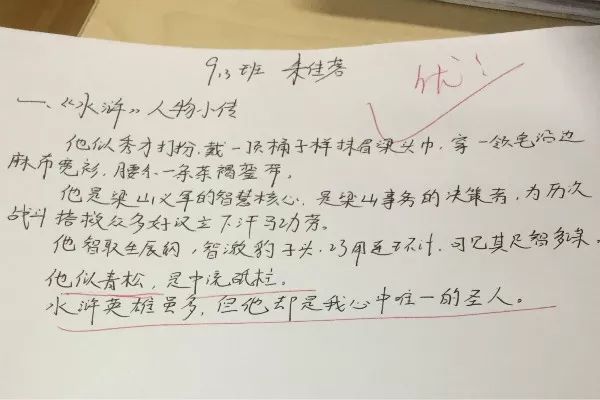 9.3班 朱佳蓉
优!
一、《水浒》人物小传
他似秀才打扮,戴一顶桶子样抹眉梁头巾,穿一领皂沿边
麻布宽衫,腰系一条茶褐銮带。
他是梁山义军的智慧核心,是梁山事务的决策者,为历次
战斗搭救众多好汉立下汗马功劳。
他智取生辰纲,智激豹子头,巧用连环计,可见其足智多谋。
他似青松,是中流砥柱。
水浒英雄虽多,但他却是我心中唯一的圣人。